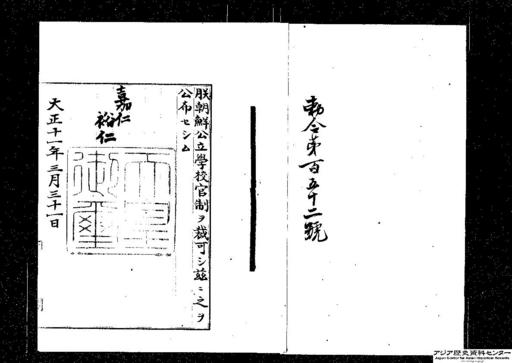 勅令第百五十二號
朕朝鮮公立學校官制ヲ裁可シ茲ニ之ヲ
公布セシム
嘉仁
裕仁
天皇
御璽
大正十一年三月三十一日
アジア歴史資料センター
Japan Center for Asian Historical Records